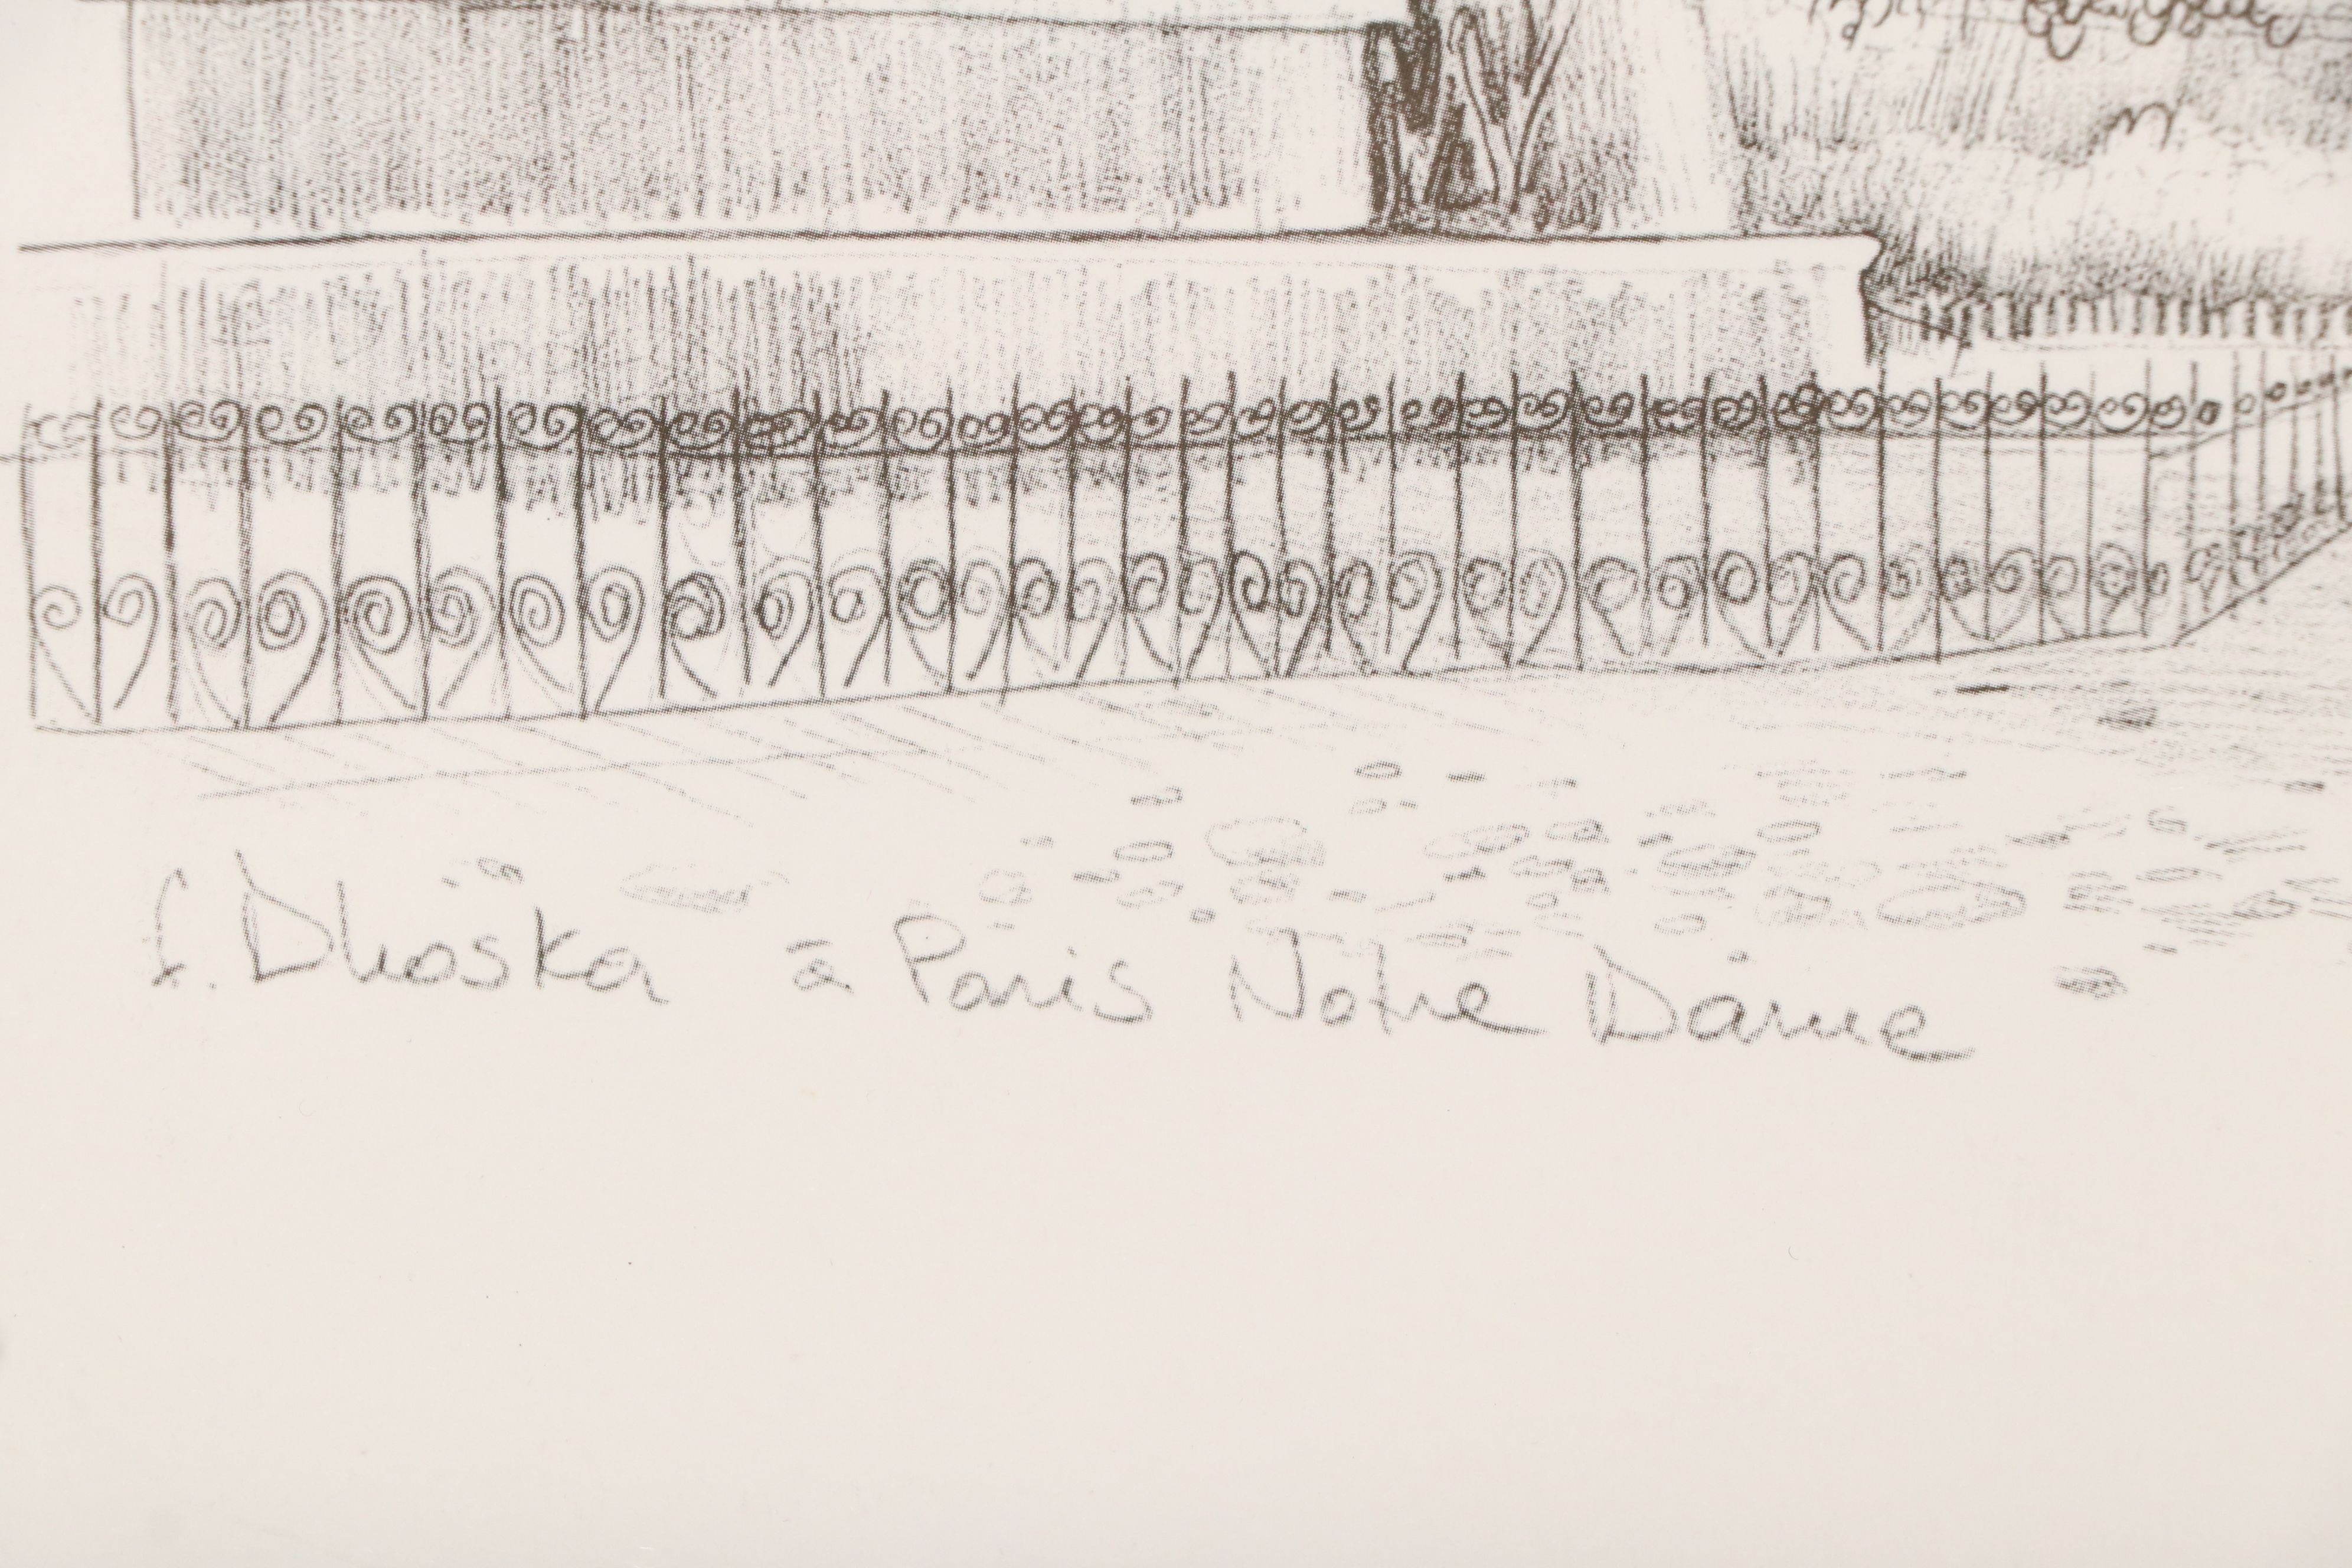 f. Dhoska à Paris Notre Dame